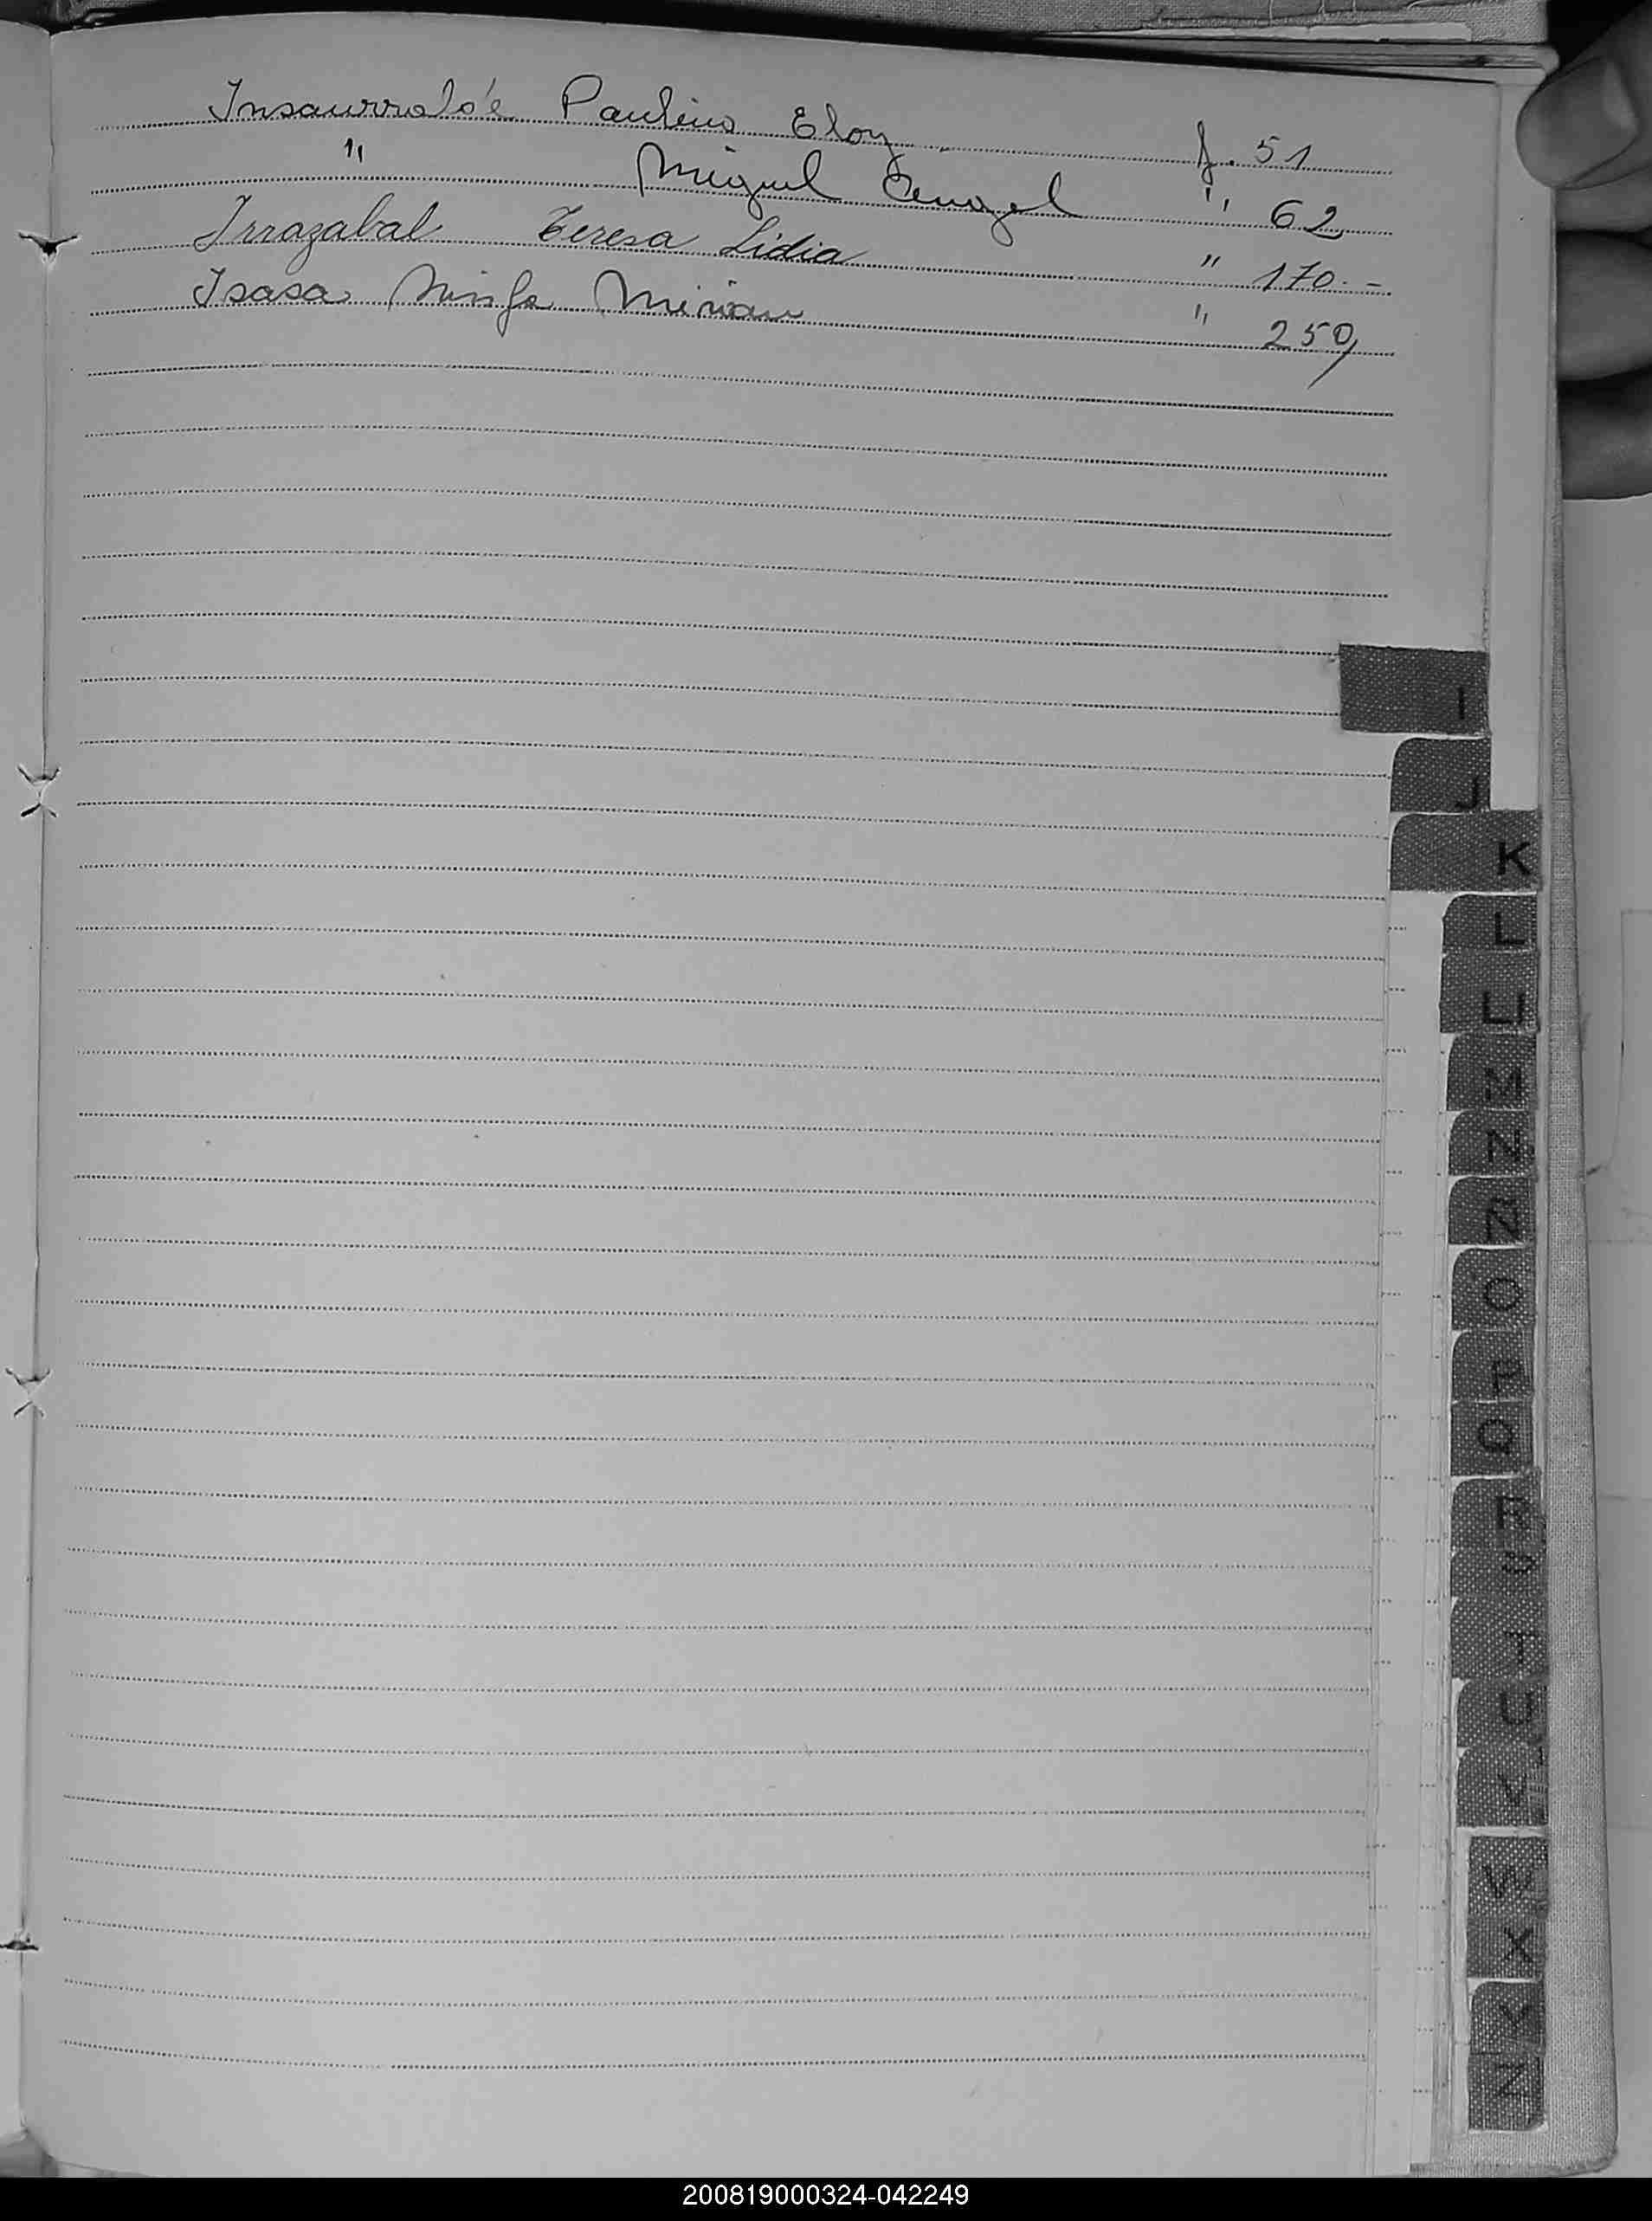 Insaurralde Paulino Eloy f. 51
" Miguel Angel " 62
Irrazabal Teresa Lidia " 170.-
Isasa Ninfa Mirian " 250
I
J
K
L
LL
M
N
Ñ
O
P
Q
R
S
T
U
V
W
X
Y
Z
200819000324-042249